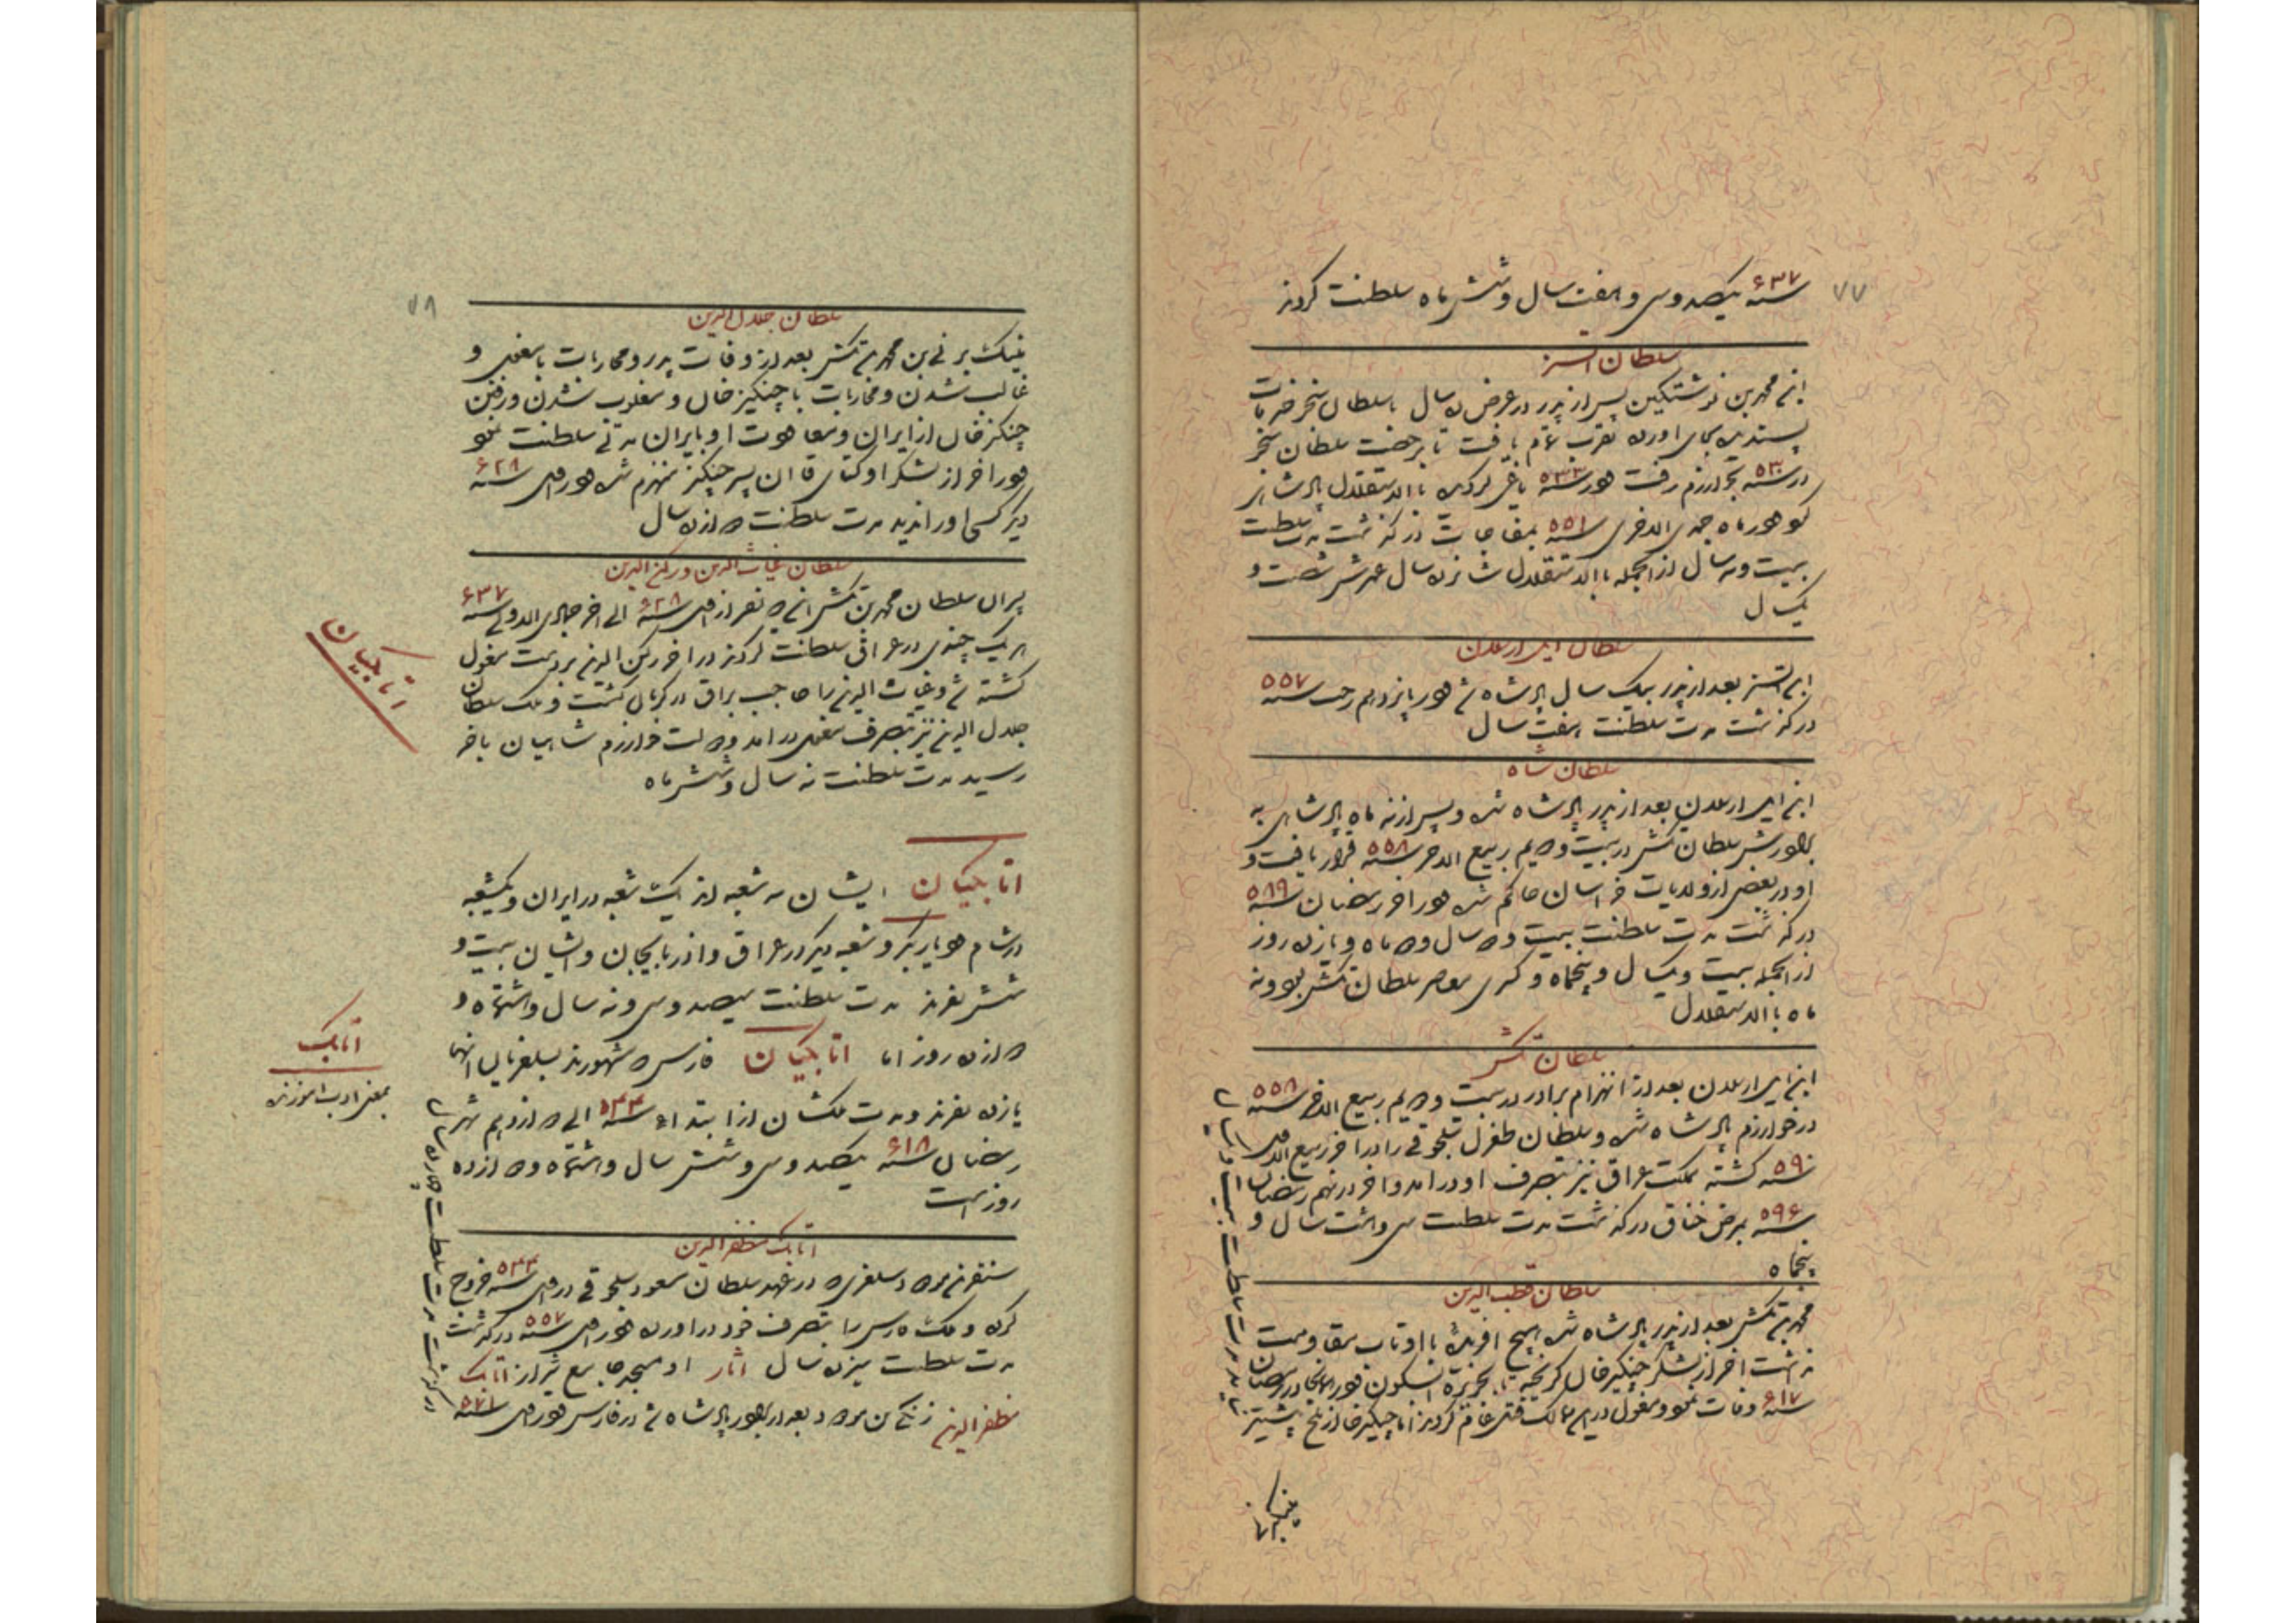 ۷۷
سنه ۶۳۷ یکصد و سی و هفت سال و شش ماه سلطنت کردند
سلطان اتسز
ابن محمد بن نوشتکین پس از پدر در عرض ده سال با سلطان سنجر خدمات
پسندیده بجای آورده تقرب تمام یافت تا برخصت سلطان سنجر
در سنه ۵۳۰ بخوارزم رفت و در سنه ۵۳۳ یاغی گردیده بالاستقلال پادشاهی
کرد و در ماه جمادی الاخری سنه ۵۵۱ بمفاجات درگذشت مدت سلطنت
بیست و نه سال از آنجمله بالاستقلال شانزده سال عمرش شصت و
یکسال
سلطان ایل ارسلان
ابن اتسز بعد از پدر بیک سال پادشاه شد و در پانزدهم رجب سنه ۵۵۷
درگذشت مدت سلطنت هفت سال
سلطان شاه
ابن ایل ارسلان بعد از پدر پادشاه شد و پس از نه ماه پادشاهی به
برادرش سلطان تکش در بیست و دویم ربیع الاخر سنه ۵۵۸ قرار یافت و
او در بعضی از ولایات خراسان حاکم شد و در آخر رمضان سنه ۵۸۹
درگذشت مدت سلطنت بیست و دو سال و دو ماه و یازده روز
از آنجمله بیست و یکسال و پنجماه و کسری معاصر سلطان تکش بود و نه
ماه بالاستقلال
سلطان تکش
ابن ایل ارسلان بعد از انهزام برادر در بیست و دویم ربیع الاخر سنه ۵۵۸
در خوارزم پادشاه شد و سلطان طغرل سلجوقی را در آخر ربیع الاول
سنه ۵۹۰ کشته مملکت عراق نیز بتصرف او درآمد و آخر در نهم رمضان
سنه ۵۹۶ بمرض خناق درگذشت مدت سلطنت سی و هشت سال و
پنجماه
سلطان قطب الدین
محمد بن تکش بعد از پدر پادشاه شد هیچ آفریده با او تاب مقاومت
نداشت آخر از لشکر چنگیز خان گریخته بجزیره آبسکون و در آنجا در رمضان
سنه ۶۱۷ وفات نمود و مغول در این ممالک قتل عام کردند اما چنگیز خان از بلخ پیشتر
نیامد مدت سلطنت بیست و یکسال
۷۸
سلطان جلال الدین
مینکبرنی بن محمد بن تکش بعد از وفات پدر و محاربات با مغول و
غالب شدن و محاربات با چنگیز خان و مغلوب شدن و رفتن
چنگیز خان از ایران و معاودت او بایران مدتی سلطنت نمود
و در آخر از لشکر اوکتای قاآن پسر چنگیز منهزم شد و در اول سنه ۶۲۸
دیگر کسی او را ندید مدت سلطنت دوازده سال
سلطان غیاث الدین و رکن الدین
پسران سلطان محمد بن تکش این دو نفر از اول سنه ۶۲۸ الی آخر جمادی الاولی سنه ۶۳۷
هر یک چندی در عراق سلطنت کردند در آخر رکن الدین بر دست مغول
کشته شد و غیاث الدین را حاجب براق در کرمان کشت و ملک سلطان
جلال الدین نیز بتصرف مغول درآمد و دولت خوارزم شاهیان بآخر
رسید مدت سلطنت نه سال و شش ماه
اتابکیان
اتابکیان ایشان سه شعبه اند یک شعبه در ایران و یکشعبه
در شام و دیاربکر و شعبه دیگر در عراق و آذربایجان و ایشان بیست و
شش نفرند مدت سلطنت سیصد و سی و نه سال و هشتماه و
دوازده روز اما اتابکیان فارس که مشهورند بسلغریان آنها
یازده نفرند و مدت ملکشان از ابتداء سنه ۵۴۳ الی دوازدهم شهر
رمضان سنه ۶۱۸ یکصد و سی و شش سال و هشتماه و دوازده
روز است
اتابک
بمعنی ادب آموزنده
اتابک مظفر الدین
سنقر بن مودود سلغری در عهد سلطان مسعود سلجوقی در اول سنه ۵۴۳ خروج
کرده و ملک فارس را بتصرف خود درآورده و در اول سنه ۵۵۷ درگذشت
مدت سلطنت سیزده سال آثار او مسجد جامع شیراز اتابک
مظفر الدین زنگی بن مودود بعد از برادر پادشاه شد در فارس و در اول سنه ۵۷۱
درگذشت مدت سلطنت چهارده سال